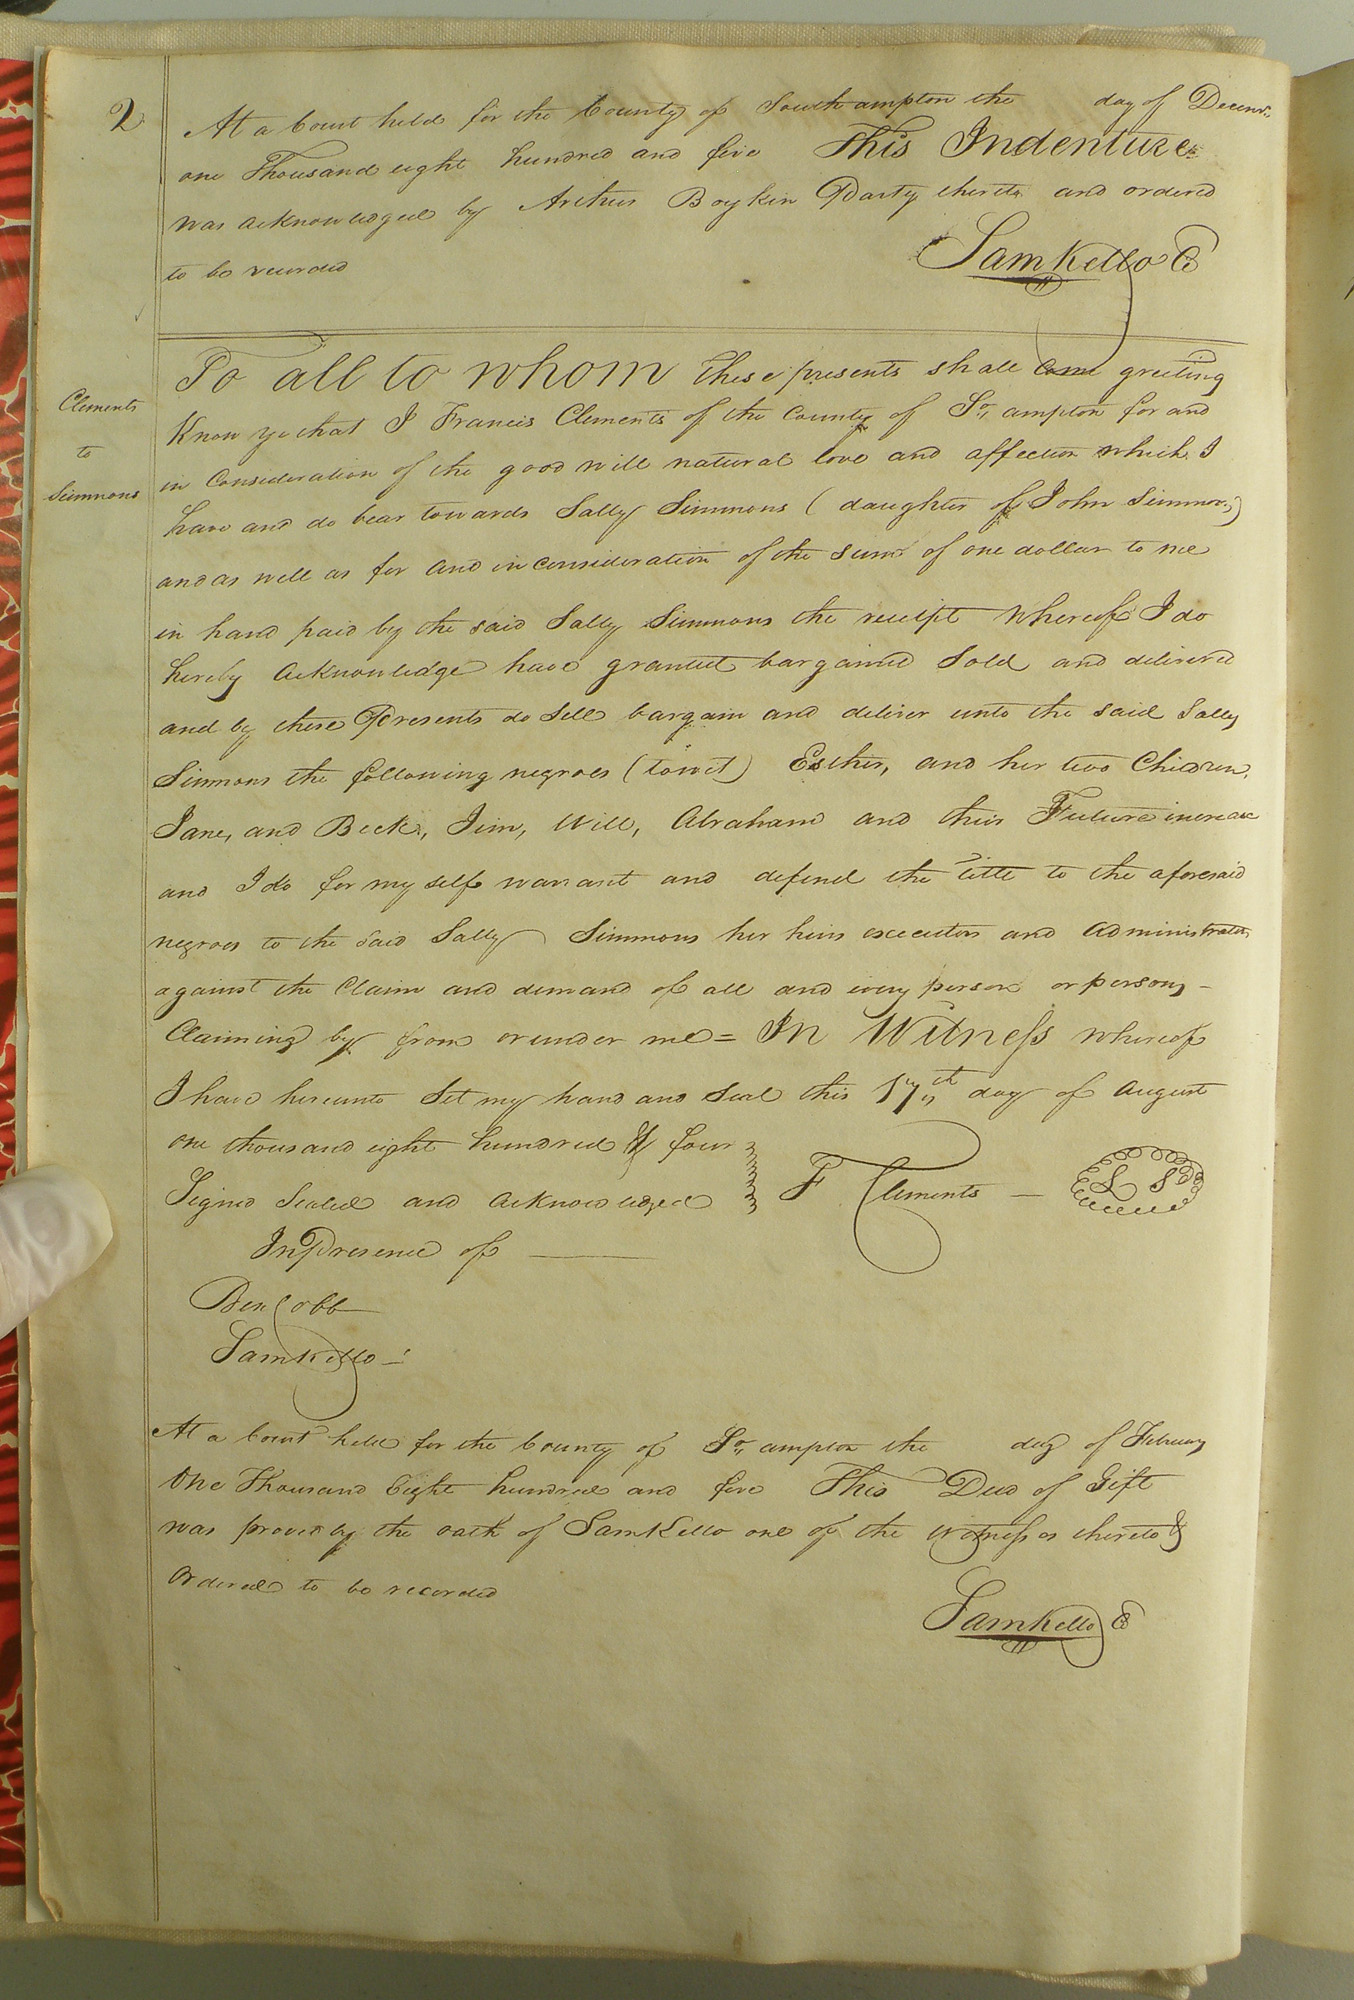 2
At a Court held for the County of Southampton the day of Decemr.
one Thousand eight hundred and five This Indenture
was acknowledged by Arthur Boykin Party thereto and ordered
to be recorded
Sam Kello C
Clements
to
Simmons
To all to whom these presents shall Come greeting
Know ye that I Francis Clements of the County of So,, ampton for and
in Consideration of the good will natural love and affection which I
have and do bear towards Sally Simmons ( daughter of John Simmons)
and as well as for and in consideration of the sum of one dollar to me
in hand paid by the said Sally Simmons the receipt whereof I do
hereby acknowledge have granted bargained Sold and delivered
and by these Presents do Sell bargain and deliver unto the said Sally
Simmons the following negroes (towit) Esther, and her two Children,
Jane, and Beck, Jim, Will, Abraham and their Future increase
and I do for my self warrant and defend the title to the aforesaid
negroes to the said Sally Simmons her heirs executors and Administrators
against the Claim and demand of all and every person or persons -
Claiming by from or under me = In Witness whereof
I have hereunto Set my hand and Seal this 17,,th day of August
one thousand eight hundred & four
Signed Sealed and Acknowledged F Clements — L S
In Presence of —
Ben Cobb
Sam Kello
At a Court held for the County of So,, ampton the day of February
One Thousand Eight hundred and five This Deed of Gift
was proved by the oath of Sam Kello one of the witnesses thereto &
Ordered to be recorded
Sam Kello C